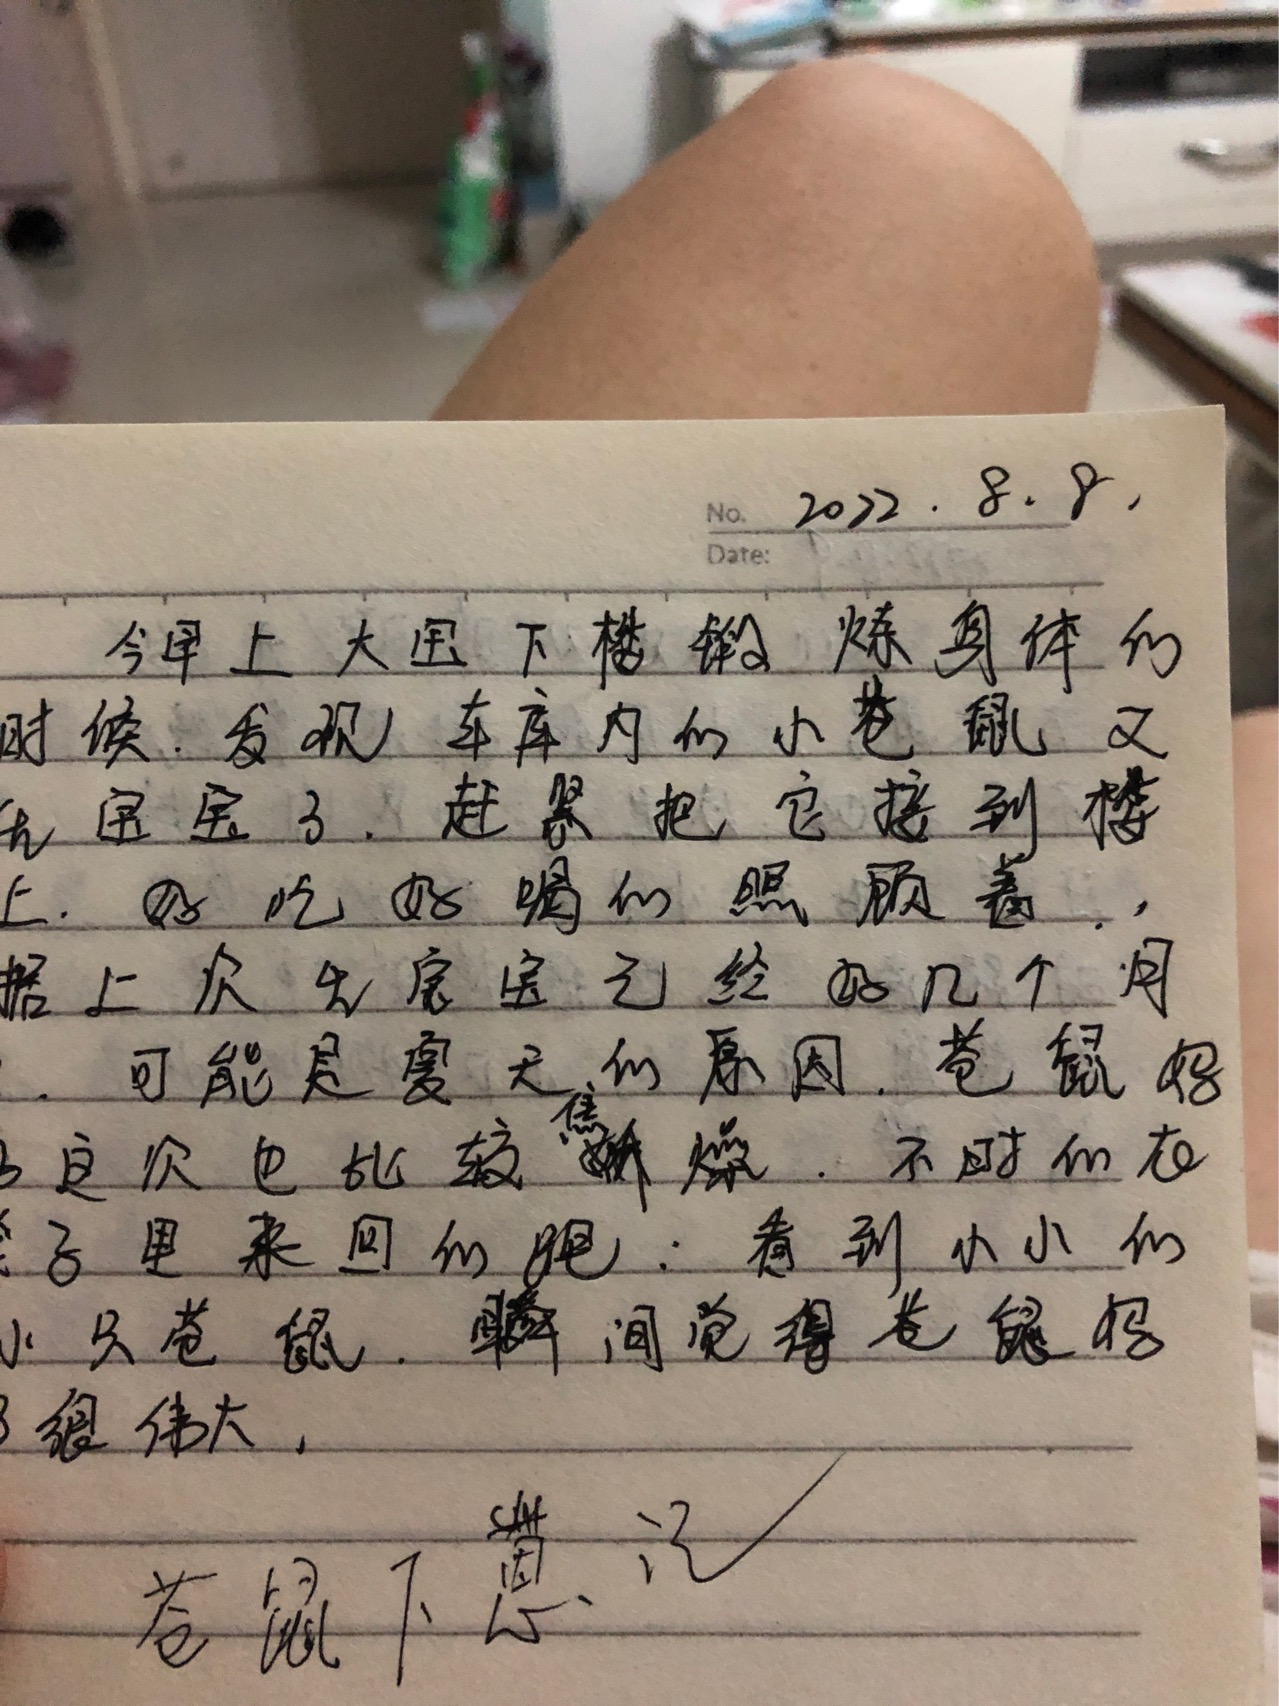 No. 2022.8.8.
Date:
今早上大宝下楼锻炼身体的
时候.发现车库内的小苍鼠又
生宝宝了.赶紧把它接到楼
上.好吃好喝的照顾着.,
据上次生宝宝已经好几个月
.可能是夏天的原因.苍鼠妈
这次也比较焦燥.不时的在
子里来回的跑.看到小小的
小只苍鼠.瞬间觉得苍鼠妈
很伟大,
苍鼠下 记